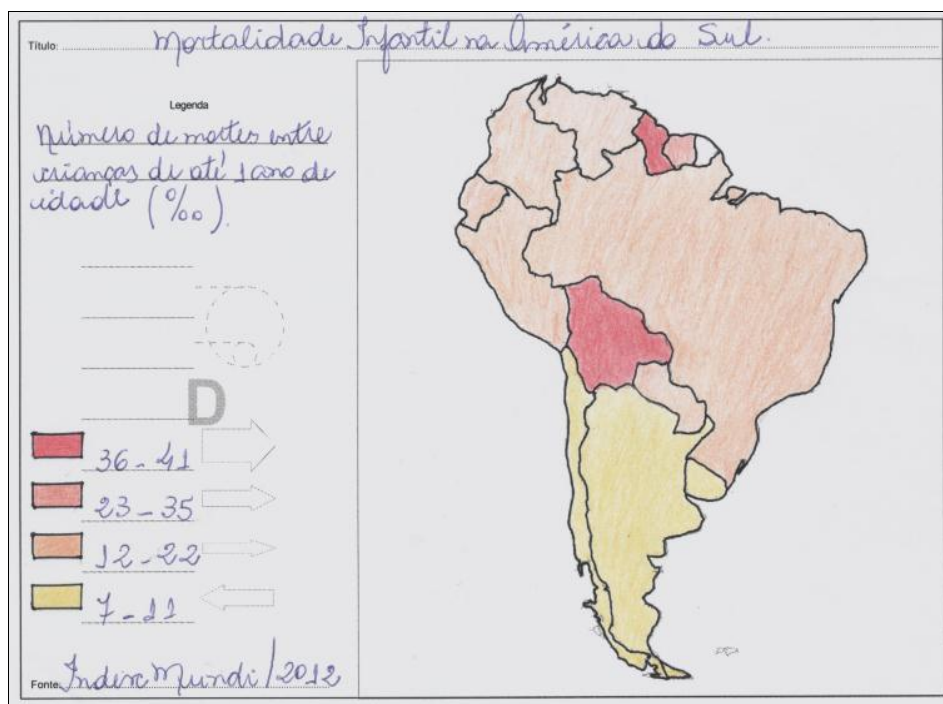 Título: Mortalidade Infantil na América do Sul.
Legenda
Número de mortes entre
crianças de até 1 ano de
idade (‰).
D
36 - 41
23 - 35
12 - 22
7 - 11
Fonte: Index Mundi/2012